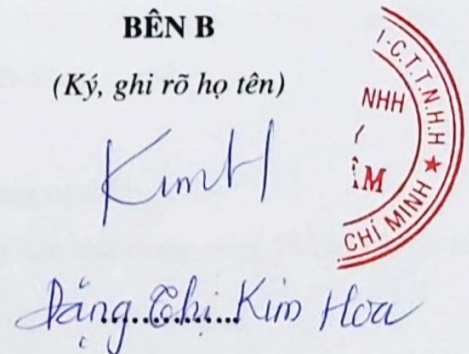 BÊN B
(Ký, ghi rõ họ tên)
I-C.T.T.N.H.H
NHH
ÂM
CHÍ MINH ★
KimH
Đặng Thị Kim Hoa